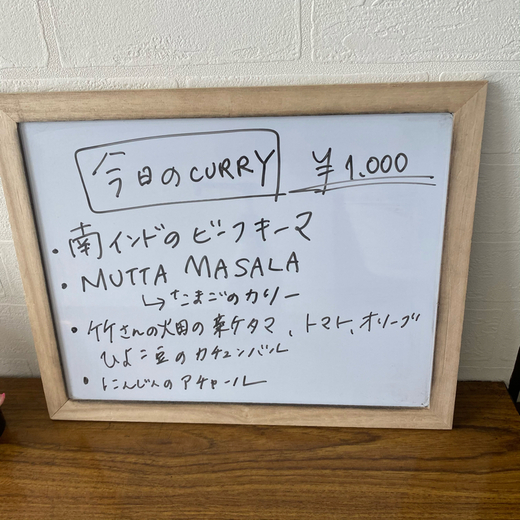 今日のCURRY ¥1.000
・南インドのビーフキーマ
・MUTTA MASALA
↳たまごのカリー
・竹さんの畑の葉ケタマ、トマト、オリーブ
ひよこ豆のカチュンバル
・にんじんのアチャール